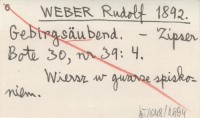 WEBER Rudolf 1892.
Gebirgsäubend. – Zipser
Bote 30, nr 39: 4.
Wiersz w gwarze spisko-
niem.